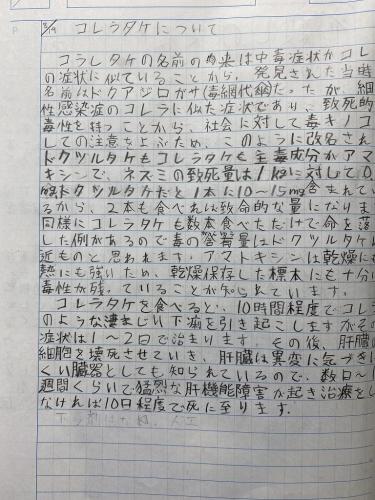 3/19 コレラタケについて
コラレタケの名前の由来は中毒症状がコレ
の症状に似ていることから、発見された当時
名前はドクアジロガサ(毒網代傘)だったが、細
性感染症のコレラに似た症状であり、致死的
毒性を持つことから、社会に対して毒キノコ
しての注意をよぶため、このように改名され
ドクツルタケもコレラタケも主毒成分がアマ
キシンで、ネズミの致死量は1kgに対して0.
ドクツルタケだと1本に10~15mg含まれてい
るから、2本も食べれば致命的な量になりま
同様にコレラタケも数本食べただけで命を落
した例があるので毒の含有量はドクツルタケに
近ものと思われます。アマトキシンは乾燥にも
熱にも強いため、乾燥保存した標本にも十分い
毒性が残っていることが知られています。
コレラタケを食べると、10時間程度でコレラ
のような凄まじい下痢を引き起こしますがその
症状は1~2日で治まります。その後、肝臓の
細胞を壊死させていき、肝臓は異変に気づきに
くい臓器としても知られているので、数日~1
週間くらいで猛烈な肝機能障害が起き治療をし
なければ10日程度で死に至ります。